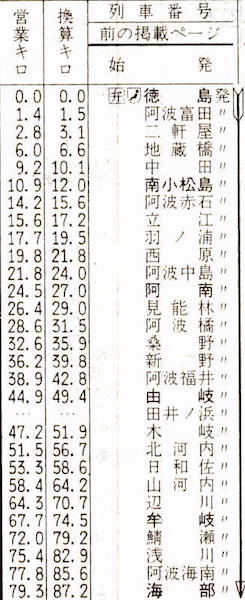 営業キロ 換算キロ 列車番号
前の掲載ページ
始 発
0.0 0.0 弁 徳島発
1.4 1.5 阿波富田〃
2.8 3.1 二軒屋〃
6.0 6.6 地蔵橋〃
9.2 10.1 中田〃
10.9 12.0 南小松島〃
14.2 15.6 阿波赤石〃
15.6 17.2 立江〃
17.7 19.5 羽ノ浦〃
19.8 21.8 西原〃
21.8 24.0 阿波中島〃
24.5 27.0 阿南〃
26.4 29.0 見能林〃
28.6 31.5 阿波橘〃
32.6 35.9 桑野〃
36.2 39.8 新野〃
38.9 42.8 阿波福井〃
44.9 49.4 由岐〃
… … 田井ノ浜〃
47.2 51.9 木岐〃
51.5 56.7 北河内〃
53.3 58.6 日和佐〃
58.4 64.2 山河内〃
64.3 70.7 辺川〃
67.7 74.5 牟岐〃
72.0 79.2 鯖瀬〃
75.4 82.9 浅川〃
77.8 85.6 阿波海南〃
79.3 87.2 海部〃